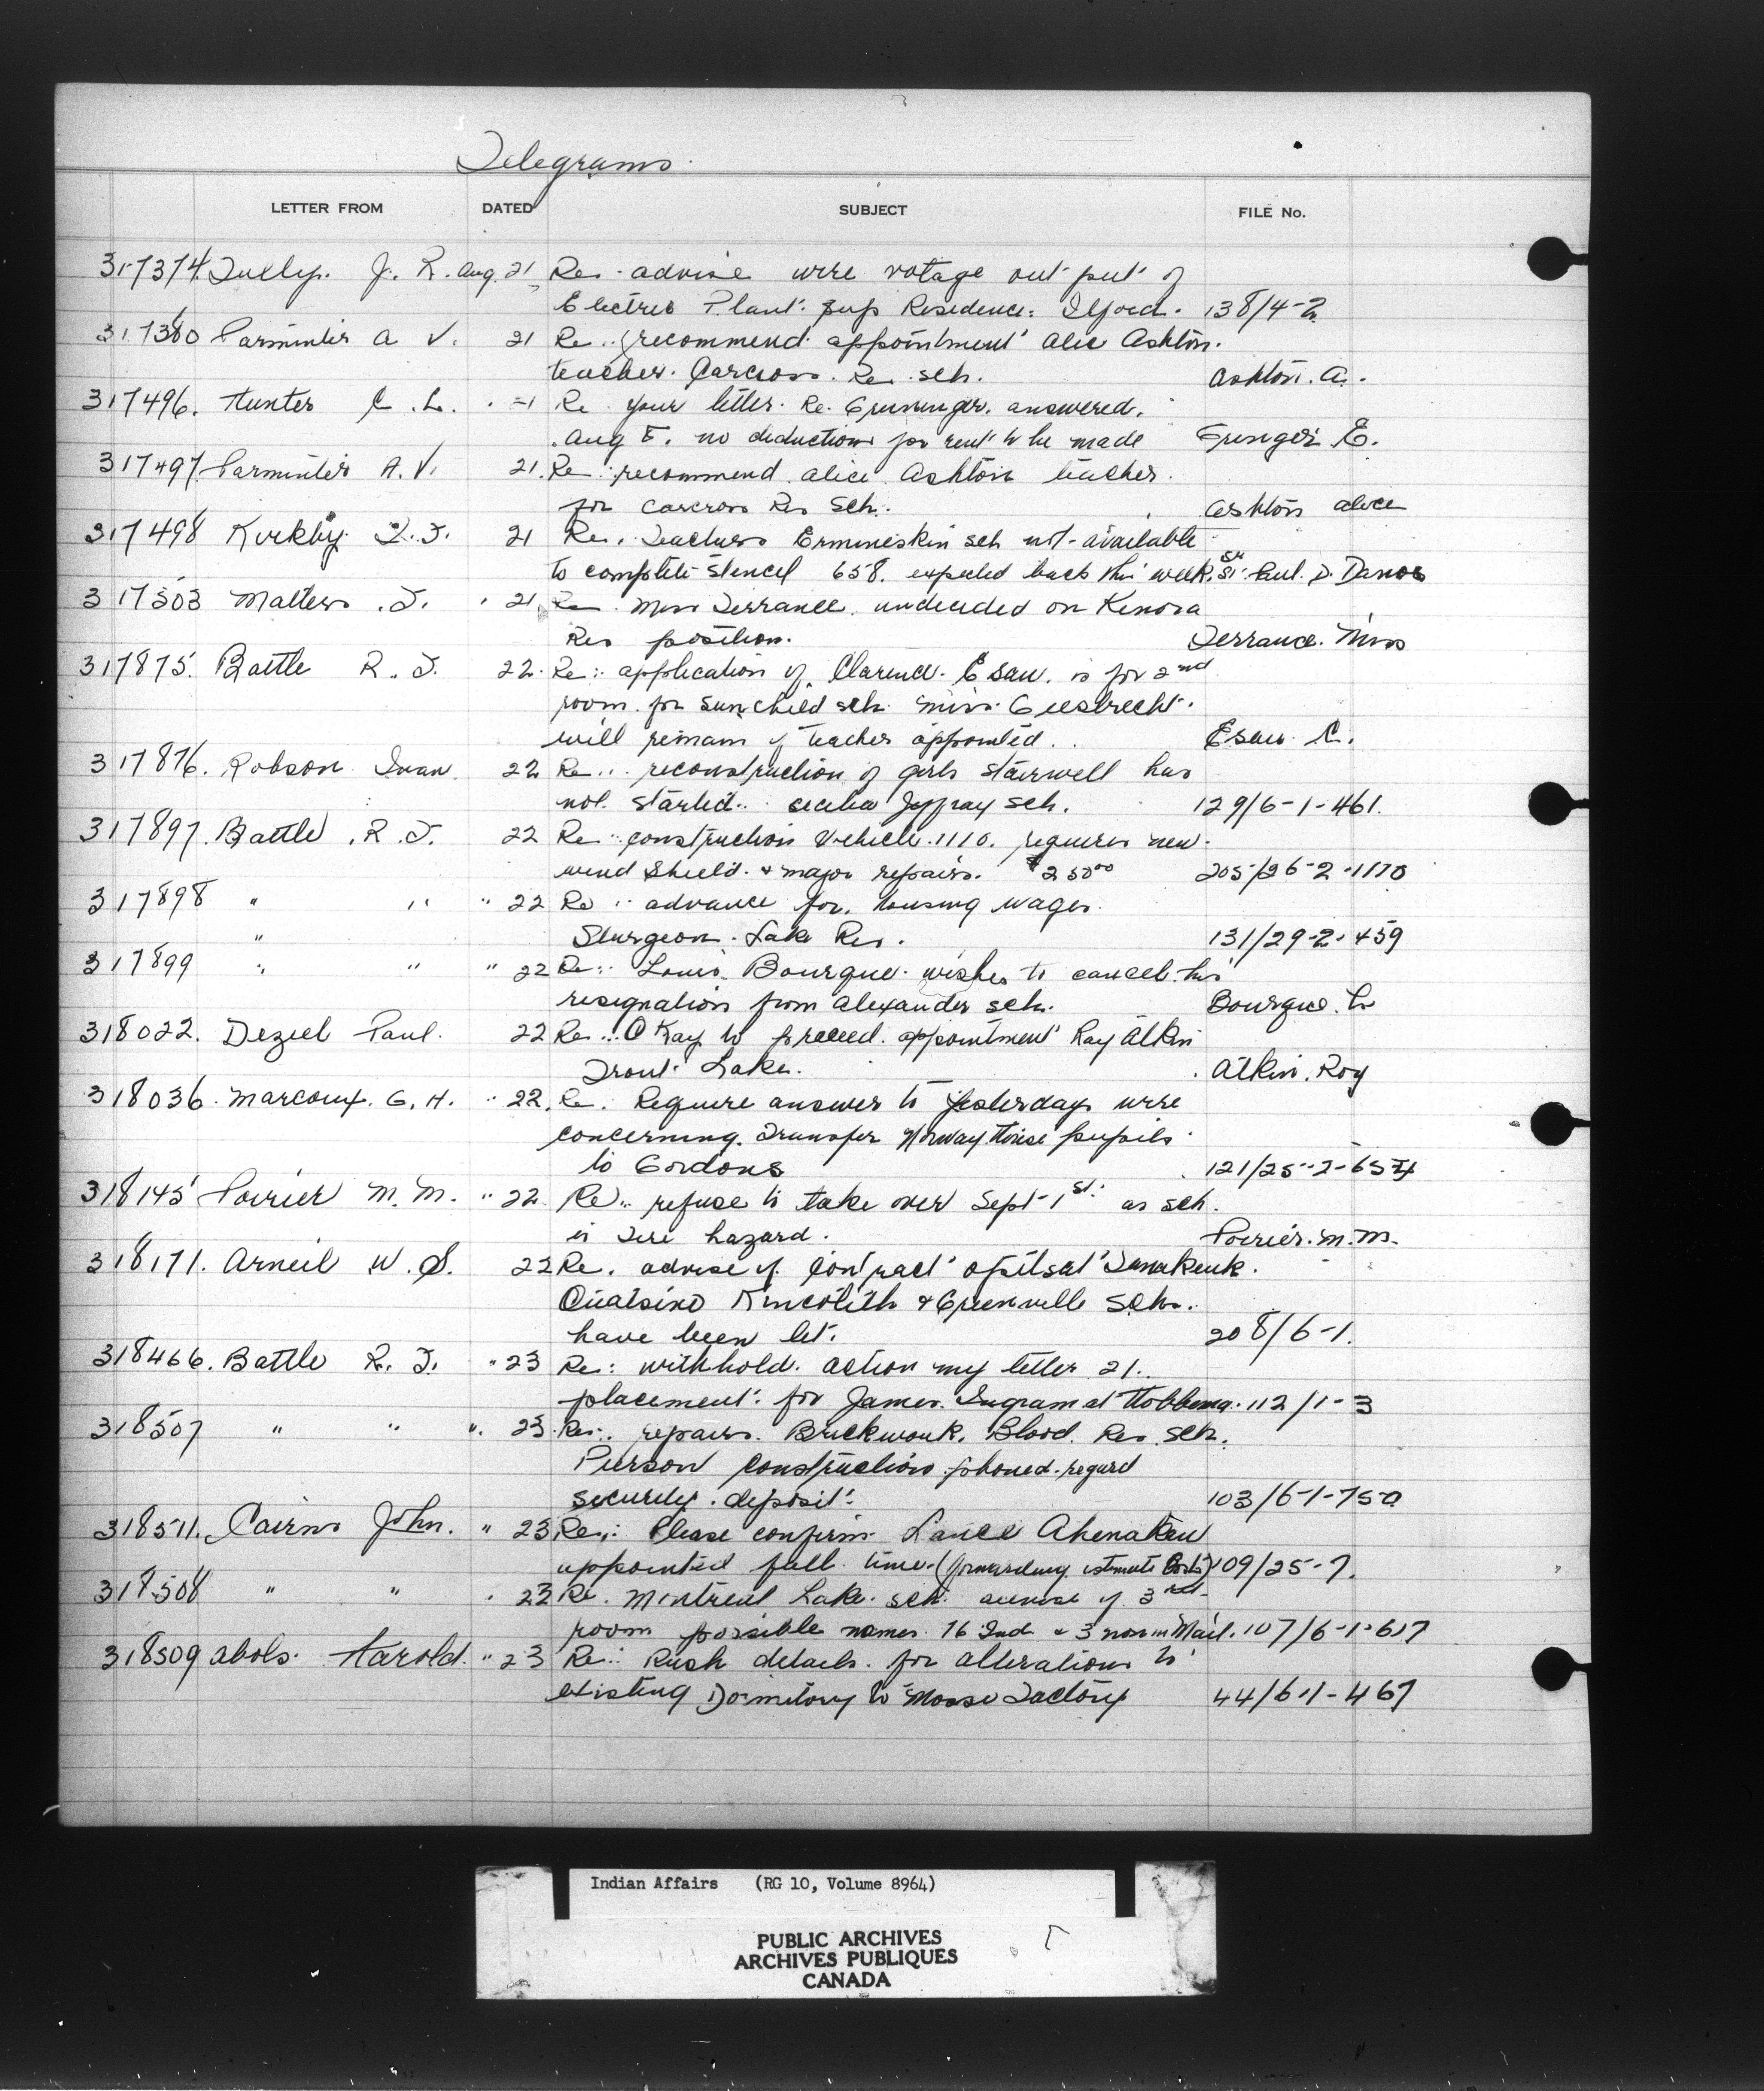 Telegrams
LETTER FROM DATED SUBJECT FILE No.
317374 Tully. J. R. Aug. 21 Re. advise wire votage out put of
Electric Plant. Sup Residence. Ilford. 138/4-2
317380 Parminter A V. 21 Re.. recommend appointment Alic Ashton.
teacher. Carcross. Res. sch. Ashton. A.
317496. Hunter C. L. 21 Re your letter. Re. answered.
Aug 5. no deductions for rent to be made E.
317497 Parminter A. V. 21. Re: recommend alice Ashton teacher.
for Carcross Res Sch. Ashton alice
317498 Kirkby 21 Re. Teachers Ermineskin sch not available
to complete stencel 658. expected back this week. St. Paul. D. Danos
317503 Matters. J. " 21 Re. Miss Terrance. undecided on Kenora
Res position. Terrance. Miss
317875. Battle R. J. 22. Re: application of Clarence. Esau. is for 2nd
room. for Sunchild sch. Miss Giesbrecht.
will remain if teacher appointed.. Esau C.
317876. Robson Ivan. 22 Re.. reconstruction of girls stairwell has
not. started.. cecilia Jeffray sch. 129/6-1-461.
317897. Battle. R. J. 22 Re: construction Vehicle. 1110. requires new.
wind shield. & major repairs. $250.00 205/26-2-1110
317898 " " " 22 Re: advance for. housing wages.
" Sturgeon. Lake Res. 131/29-2-459
317899 " " " 22 Re: Louis Bourque. wishes to cancel his
resignation from Alexander sch. Bourque. L
318022. Deziel Paul. 22 Re... O Kay to proceed. appointment Ray Atkin
Trout Lake. Atkin. Roy
318036. Marcoux. G. H. " 22. Re. Require answer to yesterdays wire
concerning. Transfer Norway House pupils
to Gordons 121/25-2-654
318145 Poirier M. M. " 22. Re.. refuse to take over Sept 1st. as sch.
is Fire hazard. Poirier. M. M.
318171. Arneil W. S. 22 Re. advise if. Contract
Quatsino Kincolith & Greenville Schs.
have been let. 208/6-1.
318466. Battle R. J. " 23 Re: withhold. action my letter 21.
placement. for James. Ingram at Hobbema. 112/1-3
318507 " " " 23. Re:. repairs. Brickwork. Blood. Res. Sch.
Pierson Construction phoned. regard
security. deposit. 103/6-1-750
318511. Cairns John. " 23 Re: Please confirm Lance Ahenakew
appointed full time. (forwarding estimate Costs) 109/25-7.
318508 " " " 23 Re. Montreal Lake. sch. advise if 3rd
room possible names. 16 Ind & 3 non in Mail. 107/6-1-617
318509 Abols. Harold. " 23 Re: Rush details. for alterations to
existing Dormitory to Moose Factory 44/6-1-467
Indian Affairs (RG 10, Volume 8964)
PUBLIC ARCHIVES
ARCHIVES PUBLIQUES
CANADA